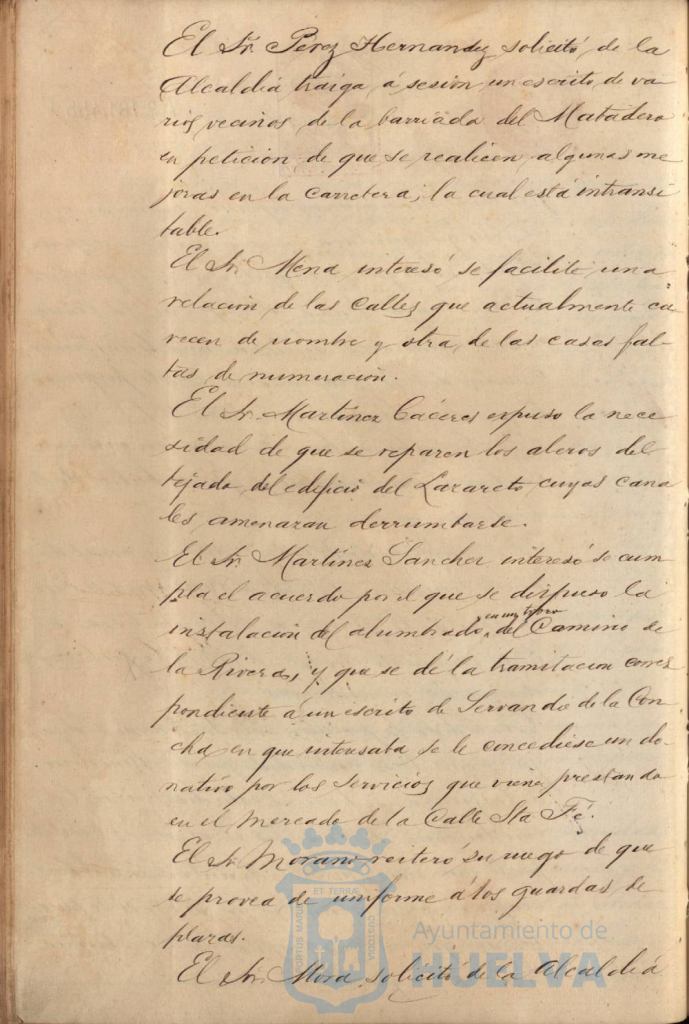 El Sr. Pérez Hernandez solicitó de la
Alcaldía traiga á sesión un escrito de va
rios vecinos de la barriada del Matadero
en petición de que se realicen algunas me
joras en la carretera, la cual está intransi
table.
El Sr. Mena interesó se facilite una
relación de las calles que actualmente ca
recen de nombre y otra de las casas fal-
tas de numeración.
El Sr. Martínez Cáceres expuso la nece
sidad de que se reparen los aleros del
tejado del edificio del Lazareto cuyas cana
les amenazan derrumbarse.
El Sr. Martínez Sanchez interesó se cum
pla el acuerdo por el que se dispuso la
en un trozo
instalación del alumbrado del Camino de
la Rivera, y que se dé la tramitación corres
pondiente á un escrito de Servando de la Con
cha en que interesaba se le concediese un do-
nativo por los servicios que viene prestando
en el mercado de la Calle Sta Fé.
El Sr. Morano reiteró su ruego de que
se provea de uniforme á los guardas de
plazas.
El Sr. Mora solicitó de la Alcaldía
PORTUS MARIS ET TERRAE CUSTODIA
Ayuntamiento de
HUELVA